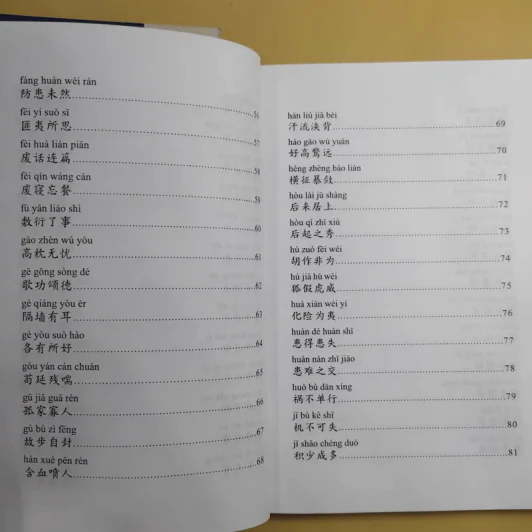 fáng huàn wèi rán
防患未然 56
fěi yí suǒ sī
匪夷所思 57
fèi huà lián piān
废话连篇 58
fèi qǐn wàng cān
废寝忘餐 59
fū yǎn liǎo shì
敷衍了事 60
gāo zhěn wú yōu
高枕无忧 61
gē gōng sòng dé
歌功颂德 62
gé qiáng yǒu ěr
隔墙有耳 63
gè yǒu suǒ hào
各有所好 64
gǒu yán cán chuǎn
苟延残喘 65
gū jiā guǎ rén
孤家寡人 66
gù bù zì fēng
故步自封 67
hán xuè pēn rén
含血喷人 68
hàn liú jiā bèi
汗流浃背 69
hào gāo wù yuǎn
好高骛远 70
héng zhēng bào liǎn
横征暴敛 71
hòu lái jū shàng
后来居上 72
hòu qǐ zhī xiù
后起之秀 73
hú zuò fēi wéi
胡作非为 74
hú jiǎ hǔ wēi
狐假虎威 75
huà xiǎn wéi yí
化险为夷 76
huàn dé huàn shī
患得患失 77
huàn nàn zhī jiāo
患难之交 78
huò bù dān xíng
祸不单行 79
jī bù kě shī
机不可失 80
jī shǎo chéng duō
积少成多 81